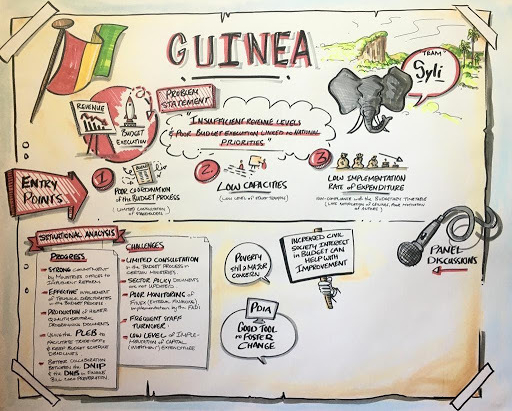 GUINEA
TEAM
Syli
PROBLEM
STATEMENT
REVENUE
BUDGET
EXECUTION
"INSUFFICIENT REVENUE LEVELS
& POOR BUDGET EXECUTION LINKED TO NATIONAL
PRIORITIES"
ENTRY
POINTS
1
POOR COORDINATION
OF THE BUDGET PROCESS
(LIMITED CONSULTATION
OF STAKEHOLDERS)
2
LOW CAPACITIES
(LOW LEVEL OF STAFF
3
LOW IMPLEMENTATION
RATE OF EXPENDITURE
NON-COMPLIANCE WITH THE BUDGETARY TIMETABLE
(LATE NOTIFICATION OF CEILINGS, POOR MOTIVATION
OF ACTORS)
PANEL
DISCUSSIONS
SITUATIONAL ANALYSIS
PROGRESS
STRONG COMMITMENT
BY MINISTERIAL OFFICES TO
IMPLEMENT REFORM
EFFECTIVE INVOLVEMENT
OF TECHNICAL DIRECTORATES
IN THE BUDGET PROCESS
PRODUCTION OF HIGHER
QUALITY SECTORAL
PROGRAMMING DOCUMENTS
USING THE PLEB TO
FACILITATE TRADE-OFFS
& KEEP BUDGET SCHEDULE
DEADLINES
BETTER COLLABORATION
BETWEEN THE DNIP
& THE DNB IN FINANCE
BILL PREPARATION
CHALLENGES
LIMITED CONSULTATION
IN THE BUDGET PROCESS IN
CERTAIN MINISTRIES
SECTOR POLICY DOCUMENTS
ARE NOT UPDATED
POOR MONITORING OF
FINEX (EXTERNAL FINANCING)
IMPLEMENTATION BY THE
FREQUENT STAFF
TURNOVER
LOW LEVEL OF IMPLE-
MENTATION OF CAPITAL
(INVESTMENT) EXPENDITURE
POVERTY
STILL A MAJOR
CONCERN
INCREASED CIVIL
SOCIETY INTEREST
IN BUDGET CAN
HELP WITH
IMPROVEMENT
PDIA
GOOD TOOL
TO FOSTER
CHANGE